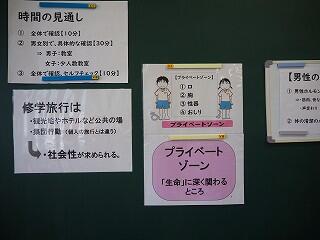 時間の見通し
① 全体で確認【10分】
② 男女別で、具体的な確認【30分】
⇒ 男子:教室
女子:少人数教室
③ 全体で確認、セルフチェック【10分】
修学旅行は
・観光地やホテルなど公共の場
・集団行動(個人の旅行とは違う)
・社会性が求められる。
【プライベートゾーン】
① 口
② 胸
③ 性器
④ おしり
プライベートゾーン
プライベート
ゾーン
「生命」に深く関わる
ところ
【男性の
① 男性ホルモン
② 体の清潔の